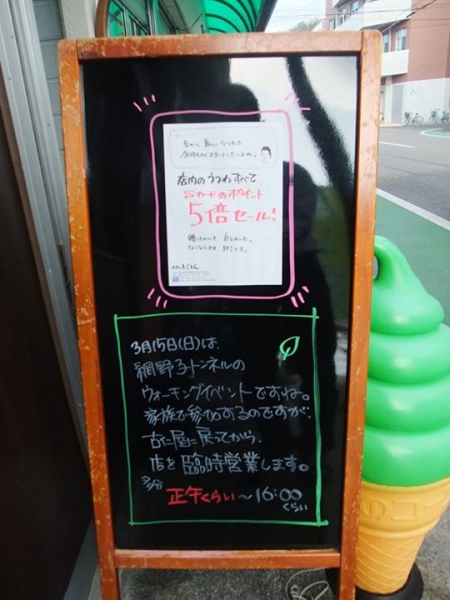 店内のうつわすべて
Sカードのポイント
5倍セール!
3月15日(日)は、
網野子トンネルの
ウォーキングイベントですね。
家族で参加するのですが、
古仁屋に戻ってから、
店を臨時営業します。
多分
正午くらい〜16:00
くらい